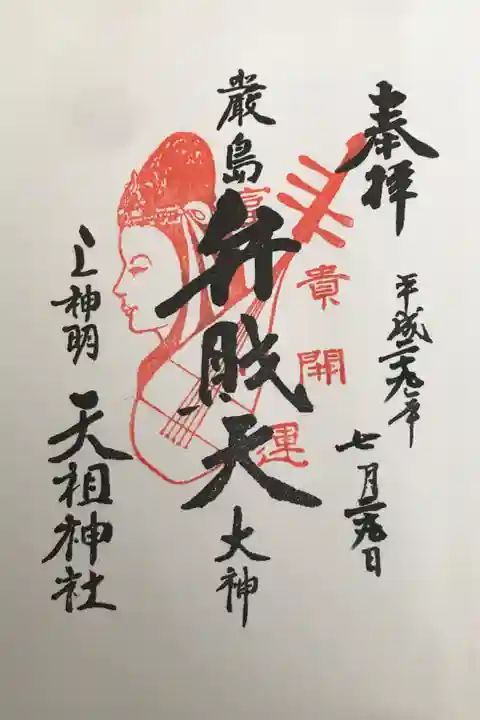 奉拝
平成二十九年
七月二十九日
厳島
弁財天
大神
富貴開運
上神明
天祖神社